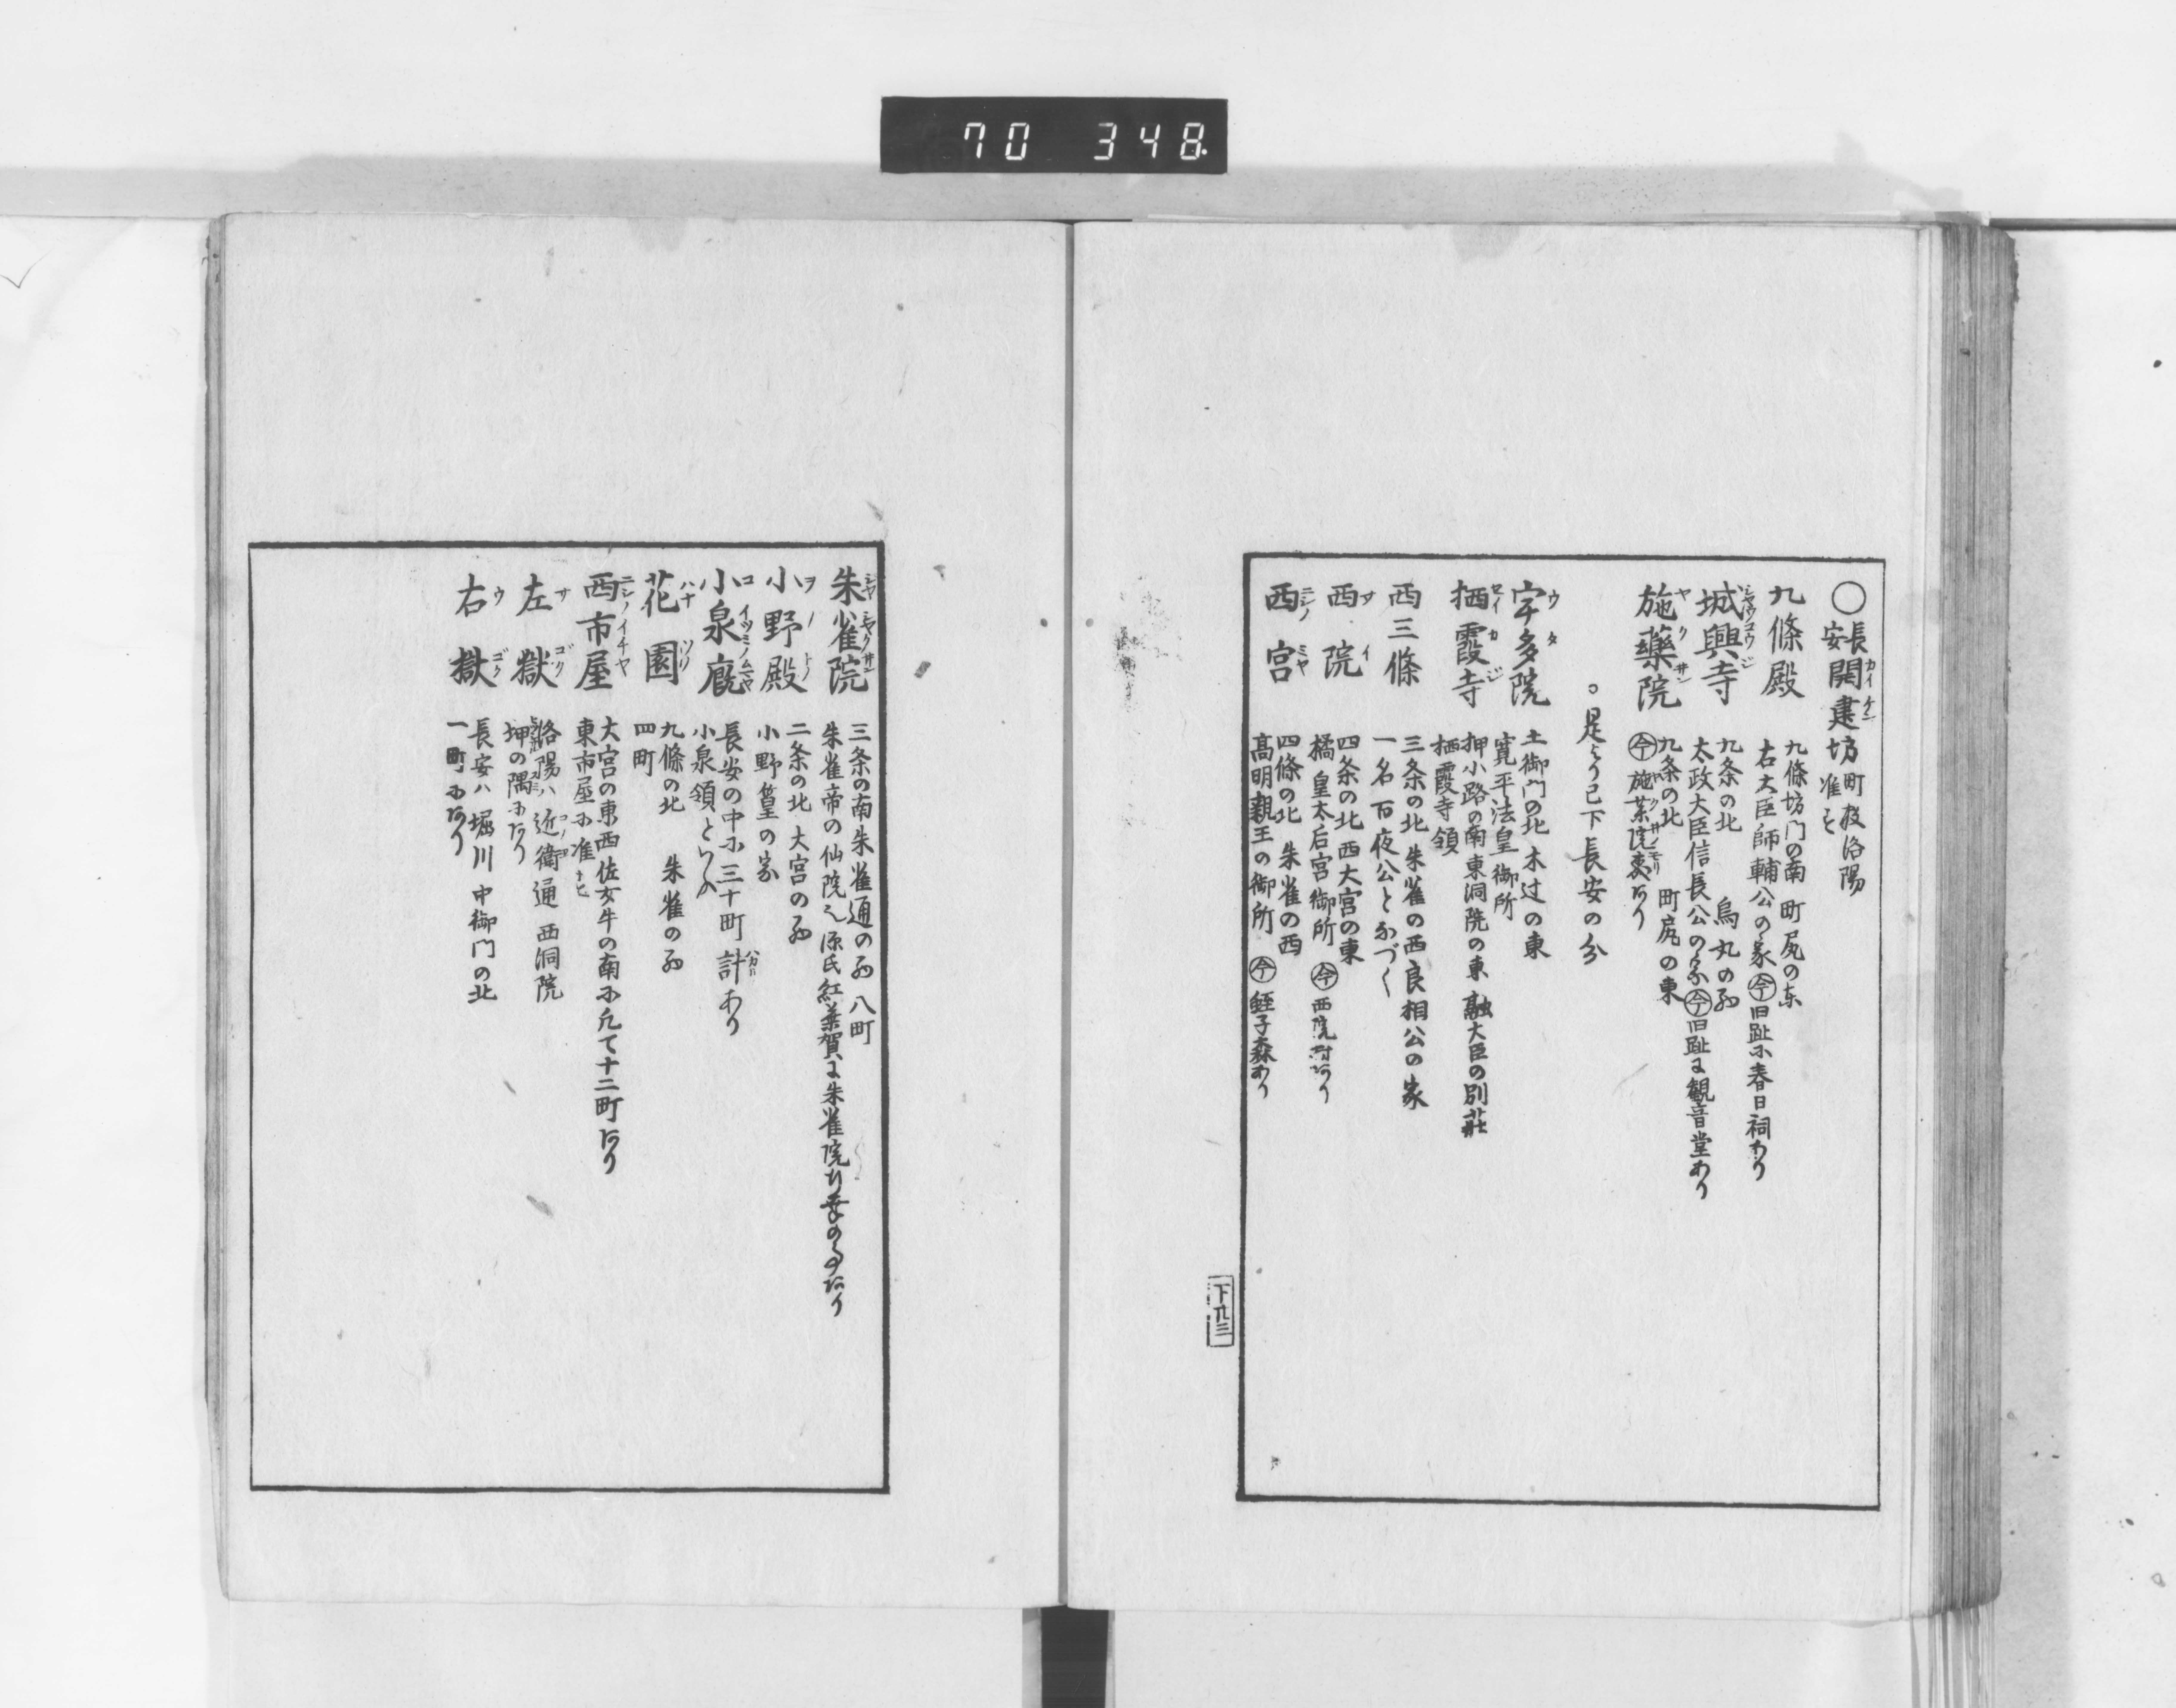 70 348
○長安開建坊 町数洛陽
准そ
九條殿 九條坊門の南 町尻の东
右大臣師輔公の家 今旧趾に春日祠あり
城興寺 九条の北 烏丸の西
太政大臣信長公の家 今旧趾に観音堂あり
施藥院 九条の北 町尻の東
今施薬院あり
○是より已下長安の分
宇多院 土御門の北 木辻の東
寛平法皇御所
栖霞寺 押小路の南東洞院の東 融大臣の別莊
栖霞寺領
西三條 三条の北 朱雀の西 良相公の家
一名百夜公となづく
西院 四条の北 西大宮の東
橘皇太后宮御所 今西院村あり
西宮 四條の北 朱雀の西
高明親王の御所 今蛭子森あり
下廿三
朱雀院 三条の南朱雀通の西 八町
朱雀帝の仙院也 源氏紅葉賀に朱雀院行幸の事あり
小野殿 二条の北 大宮の西
小野篁の家
小泉廐 長安の中に三十町計あり
小泉領といふ
花園 九條の北 朱雀の西
四町
西市屋 大宮の東西佐女牛の南に凡て十二町あり
東市屋に准
左獄 洛陽ハ近衛通 西洞院
坤の隅にあり
右獄 長安ハ堀川 中御門の北
一町にあり